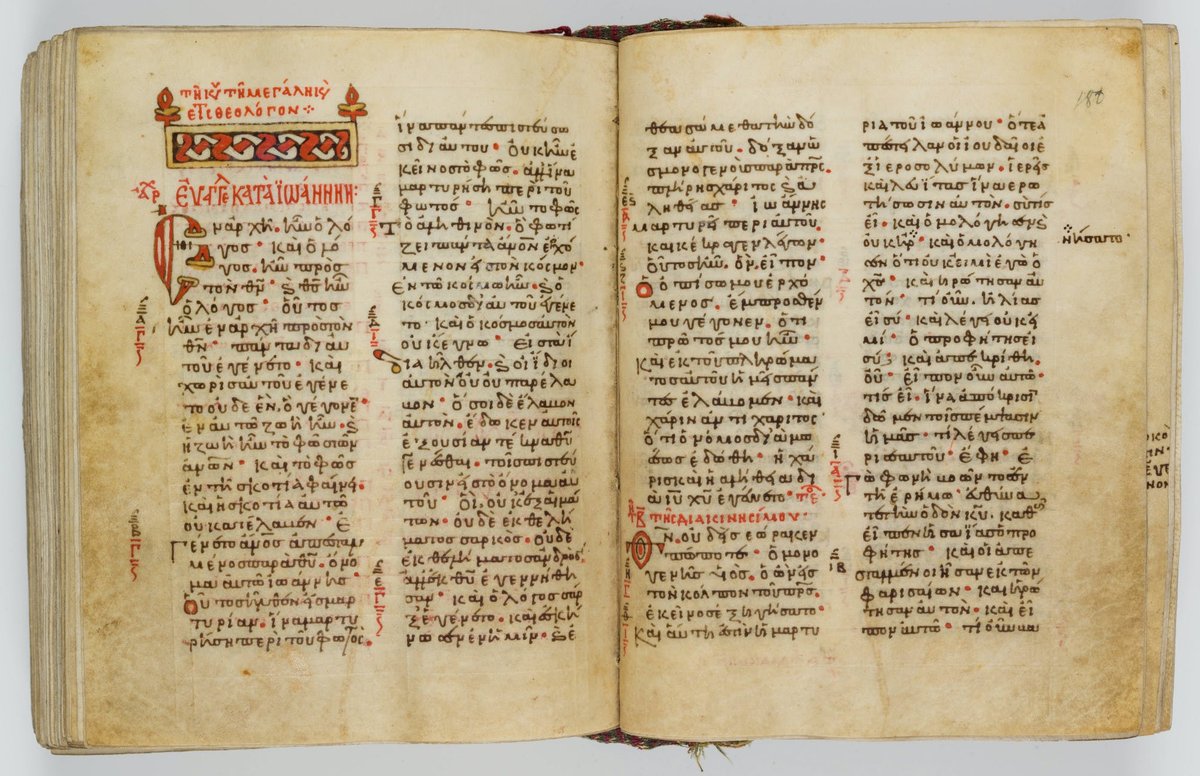 ΤΗ ΚΥ ΤΗ ΜΕΓΑΛΗ ΚΥ
ΘΕΟΛΟΓΟΝ
ΕΥΑΓΓΕ ΚΑΤΑ ΪΩΑΝΝΗΝ:
Ἐν ἀρχῆ ἦν ὁ λό
γος · καὶ ὁ λό
γος ἦν πρὸς
τὸν θν · ς θς ἦν
ὁ λόγος · οὗτος
ἦν ἐν ἀρχῆ πρὸς τὸν
θν · πάντα δι αυ
τοῦ ἐγένετο · καὶ
χωρὶς αυτοῦ ἐγένε
το οὐδὲ ἕν. ὃ γέγονεν
ἐν αὐτῶ ζωὴ ἦν · ς
ἡ ζωὴ ἦν τὸ φῶς τῶν
ἀνων · καὶ τὸ φῶς
ἐν τῆ σκοτία φαίνει ·
καὶ ἡ σκοτία αὐτὸ
οὐ κατέλαβεν · Ἐ
γένετο ἄνος ἀπεσταλ
μένος παρὰ θυ · ὄνο
μα αὐτῶ ἰωάννης ·
Οὗτος ἦλθεν εἰς μαρ
τυρίαν · ἵνα μαρτυ
ρήση περὶ τοῦ φωτός ·
ἵνα πάντες πιστεύσω
σι δι αυτοῦ · οὐκ ἦν ἐ
κεῖνος τὸ φῶς · ἀλλ ἵνα
μαρτυρήση περὶ τοῦ
φωτός · ἦν τὸ φῶς
τὸ ἀληθινόν · ὃ φωτί
ζει πάντα ἄνον ἐρχό
μενον εἰς τὸν κόσμον ·
Ἐν τῶ κόσμω ἦν · ς ὁ
κόσμος δι αυτοῦ ἐγένε
το · καὶ ὁ κόσμος αυτὸν
οὐκ ἔγνω · Εἰς τὰ ἴ
δια ἦλθεν · ς οἱ ἴδιοι
αυτὸν οὐ παρέλα
βον · ὅσοι δὲ ἔλαβον
αυτὸν · ἔδωκεν αυτοῖς
ἐξουσίαν τέκνα θυ
γενέσθαι · τοῖς πιστεύ
ουσιν εἰς τὸ ὄνομα αυ
τοῦ · Οἳ οὐκ ἐξ αἱμά
των · οὐδὲ ἐκ θελή
ματος σαρκός · οὐδὲ
ἐκ θελήματος ανδρός
ἀλλ ἐκ θυ ἐγεννήθη
σαν · καὶ ὁ λόγος σαρ
ξ ἐγένετο · καὶ ἐσκή
νωσεν ἐν ἡμῖν · ς ἐ
θεασάμεθα τὴν δό
ξαν αυτοῦ · δόξαν ὡ
ς μονογενοῦς παρὰ πρς ·
πλήρης χάριτος ς ἀ
ληθείας · ἰωάννης
μαρτυρεῖ περὶ αυτοῦ
καὶ κέκραγεν λέγων ·
Οὗτος ἦν · ὃν εἶπον ·
ὁ ὀπίσω μου ἐρχό
μενος · ἔμπροσθέν
μου γέγονεν · ὅτι
πρῶτός μου ἦν ·
Καὶ ἐκ τοῦ πληρώμα
τος αυτοῦ ἡμεῖς πάν
τες ἐλάβομεν · καὶ
χάριν ἀντὶ χάριτος ·
ὅτι ὁ νόμος δι μω
ϋσέως ἐδόθη · ἡ χά
ρις καὶ ἡ ἀλήθεια δι
α ιυ χυ ἐγένετο · ΤΕ
ΤΗ Β ΔΙΑΚΙΝΗΣΙΜΟΥ ·
Θν οὐδεὶς ἑώρακεν
πώποτε · ὁ μονο
γενὴς υἱὸς · ὁ ὢν εἰς
τὸν κόλπον τοῦ πρς ·
ἐκεῖνος ἐξηγήσατο ·
Καὶ αὕτη ἐστὶν ἡ μαρτυ
ρία τοῦ ἰωάννου · ὅτε ἀ
πέστειλαν οἱ ἰουδαῖοι ἐ
ξ ἱεροσολύμων · ἱερεῖς
καὶ λευίτας ἵνα ἐρω
τήσωσιν αυτόν · σὺ τίς
εἶ · καὶ ὡμολόγησεν ς
οὐκ ἠρ · καὶ ὡμολόγη
σεν ὅτι οὐκ εἰμὶ ἐγὼ ὁ
χς · καὶ ἠρώτησαν αυ
τόν · τί οὖν. ἠλίας
εἶ σύ · καὶ λέγει οὐκ εἰ
μί · ὁ προφήτης εἶ
σύ; καὶ ἀπεκρίθη.
οὔ · εἶπον οὖν αυτῶ ·
τίς εἶ · ἵνα ἀπόκρισι
δῶμεν τοῖς πέμψασιν
ἡμᾶς · τί λέγεις πε
ρὶ σεαυτοῦ · ἔφη · ἐ
γὼ φωνὴ βοῶντος ἐν
τῆ ἐρήμω · εὐθύνα
τε τὴν ὁδὸν κυ. καθὼς
εἶπεν ἡσαΐας ὁ προ
φήτης · καὶ οἱ ἀπε
σταλμένοι ἦσαν ἐκ τῶν
φαρισαίων · καὶ ἠρώ
τησαν αυτόν · καὶ εἶ
πον αυτῶ · τί οὖν βα
181
νήσατο ·